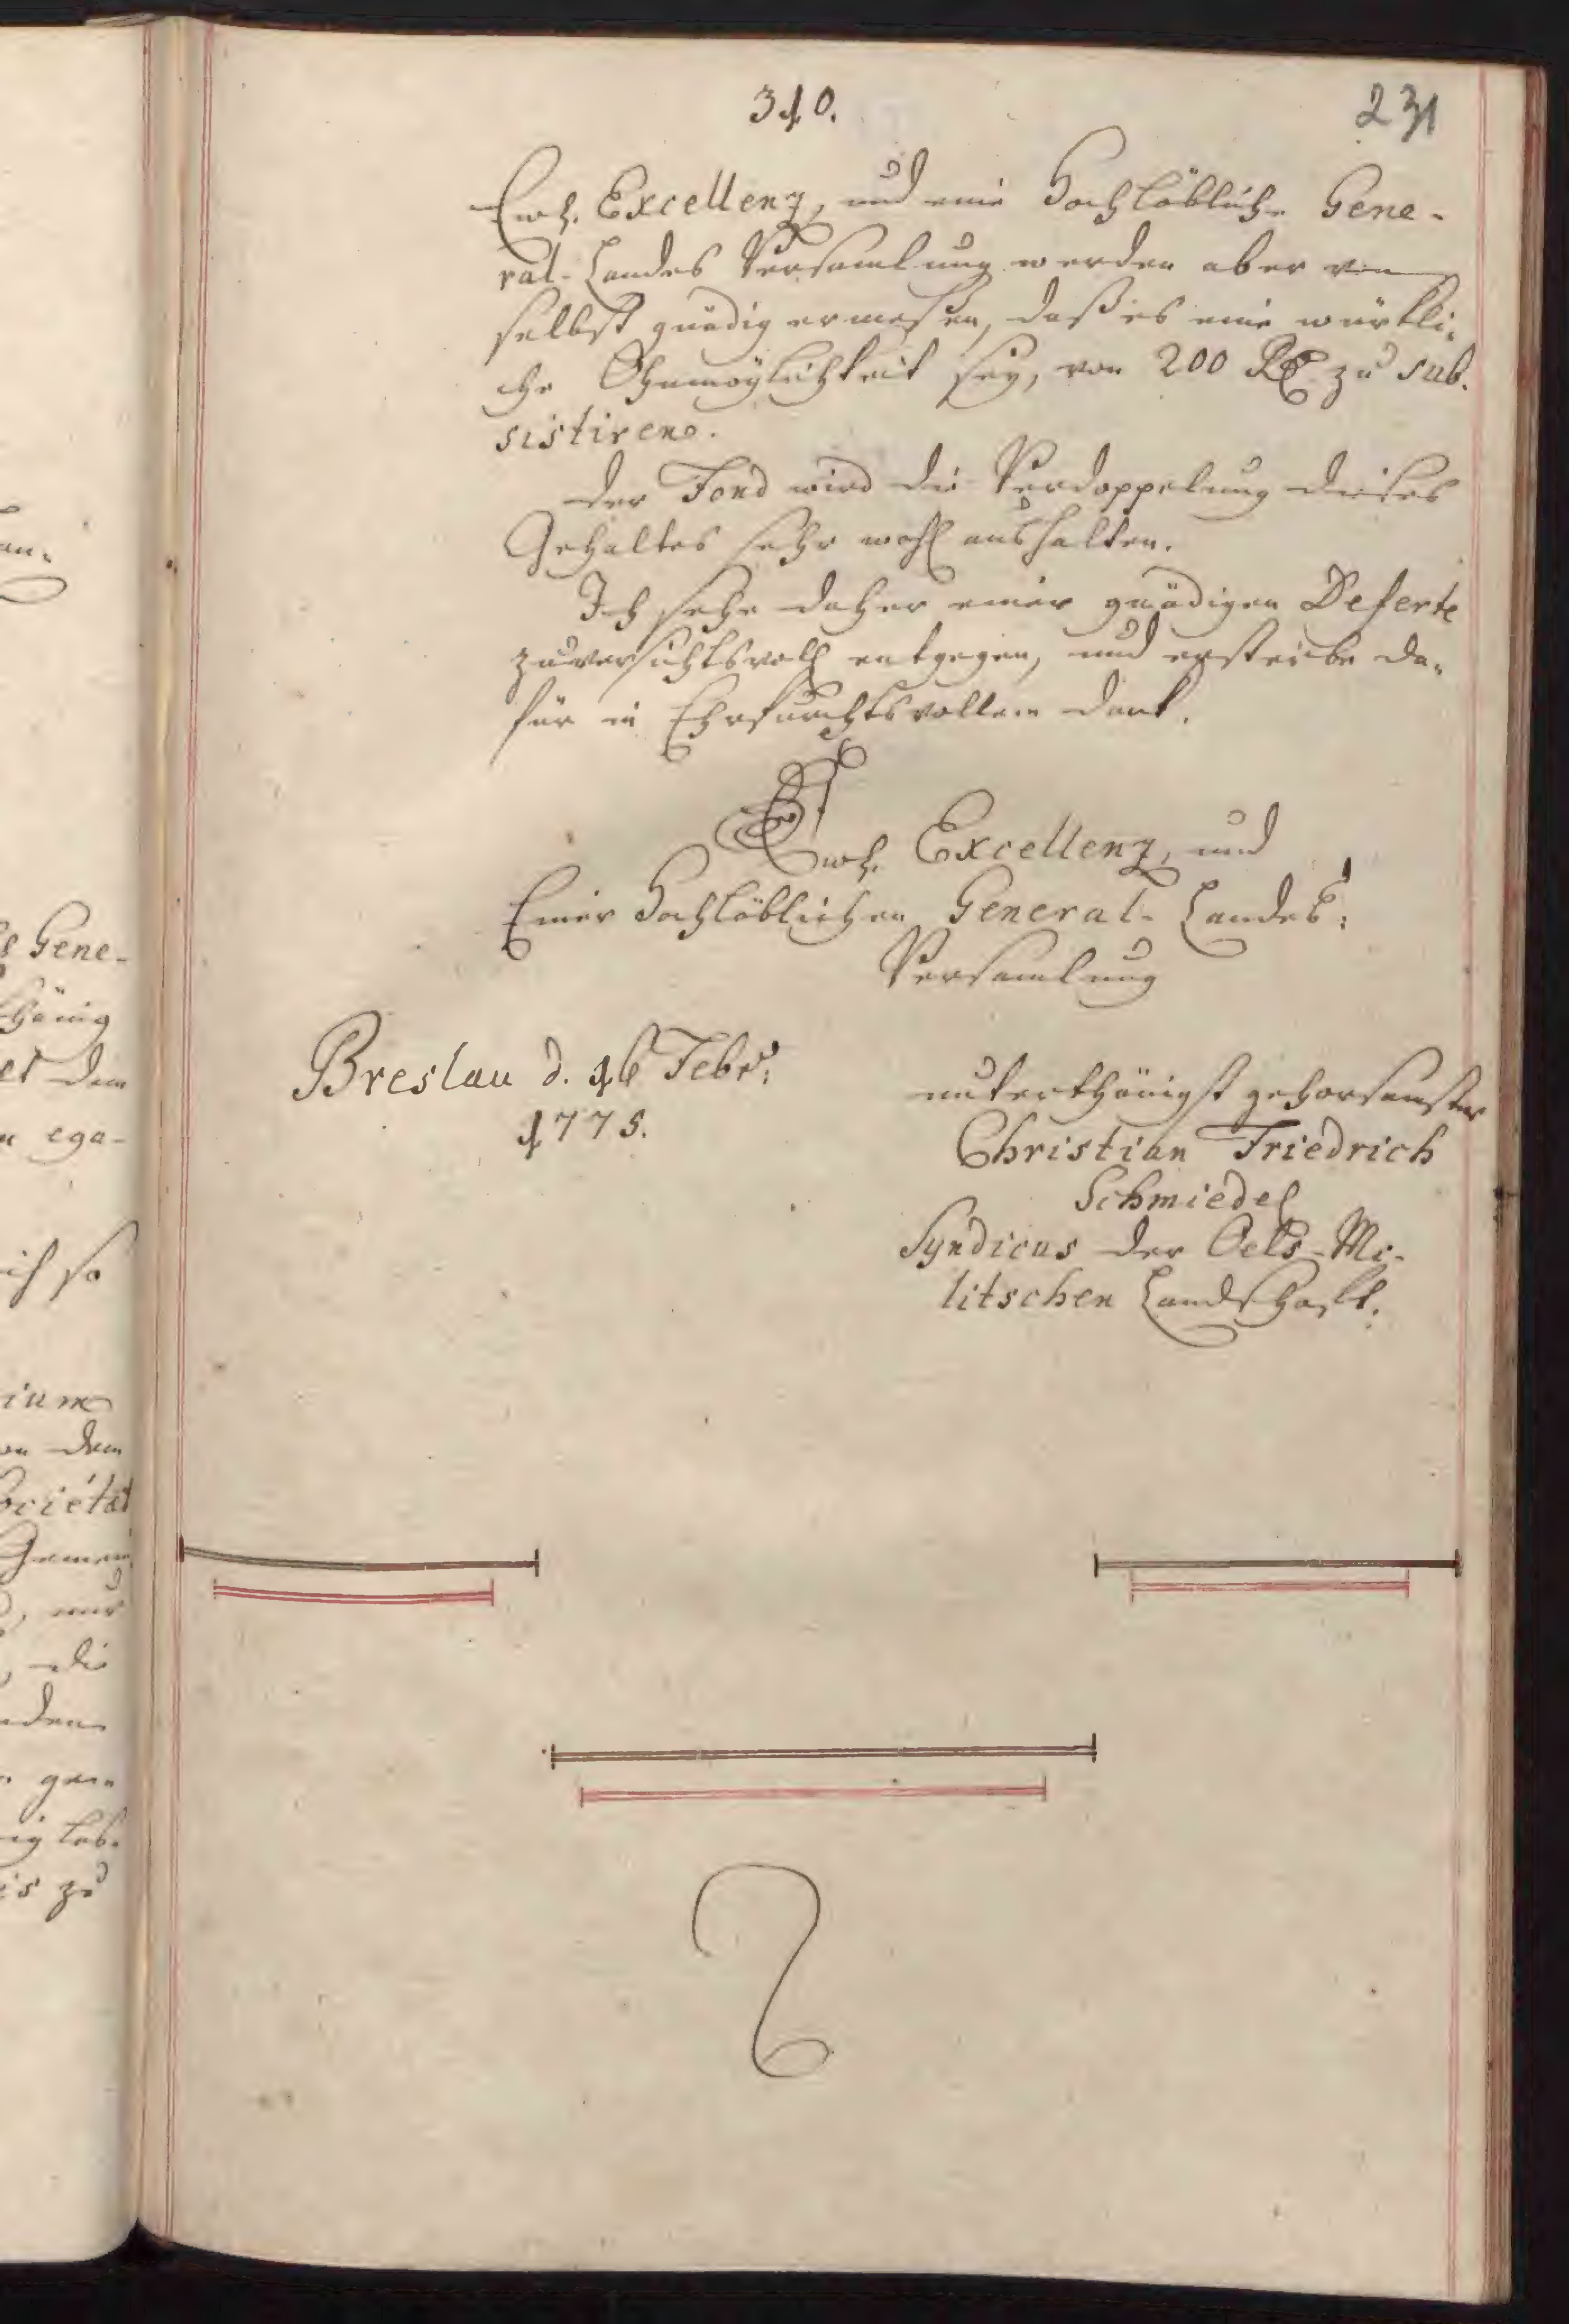 310.
231
Ewh. Excellenz, und eine Hochlöbliche Gene-
ral-Landes Versamlung werden aber von
selbst gnädig ermeßen, daß es eine würkli-
che Ohnmöglichkeit sey, von 200 Rtl. zu sub-
sistiren.
Der Fond wird die Verdoppelung dieses
Gehaltes sehr wohl aushalten.
Ich sehe daher einer gnädigen Deferte
zuversichtsvoll entgegen, und ersterbe da-
für in Ehrfurchtsvollem Dank.
Ewh. Excellenz, und
Einer Hochlöblichen General-Landes-
Versamlung
Breslau d. 16 Febr:
1775.
unterthänigst gehorsamster
Christian Friedrich
Schmiedel
Syndicus der Oels-Mi-
litschen Landschaft.